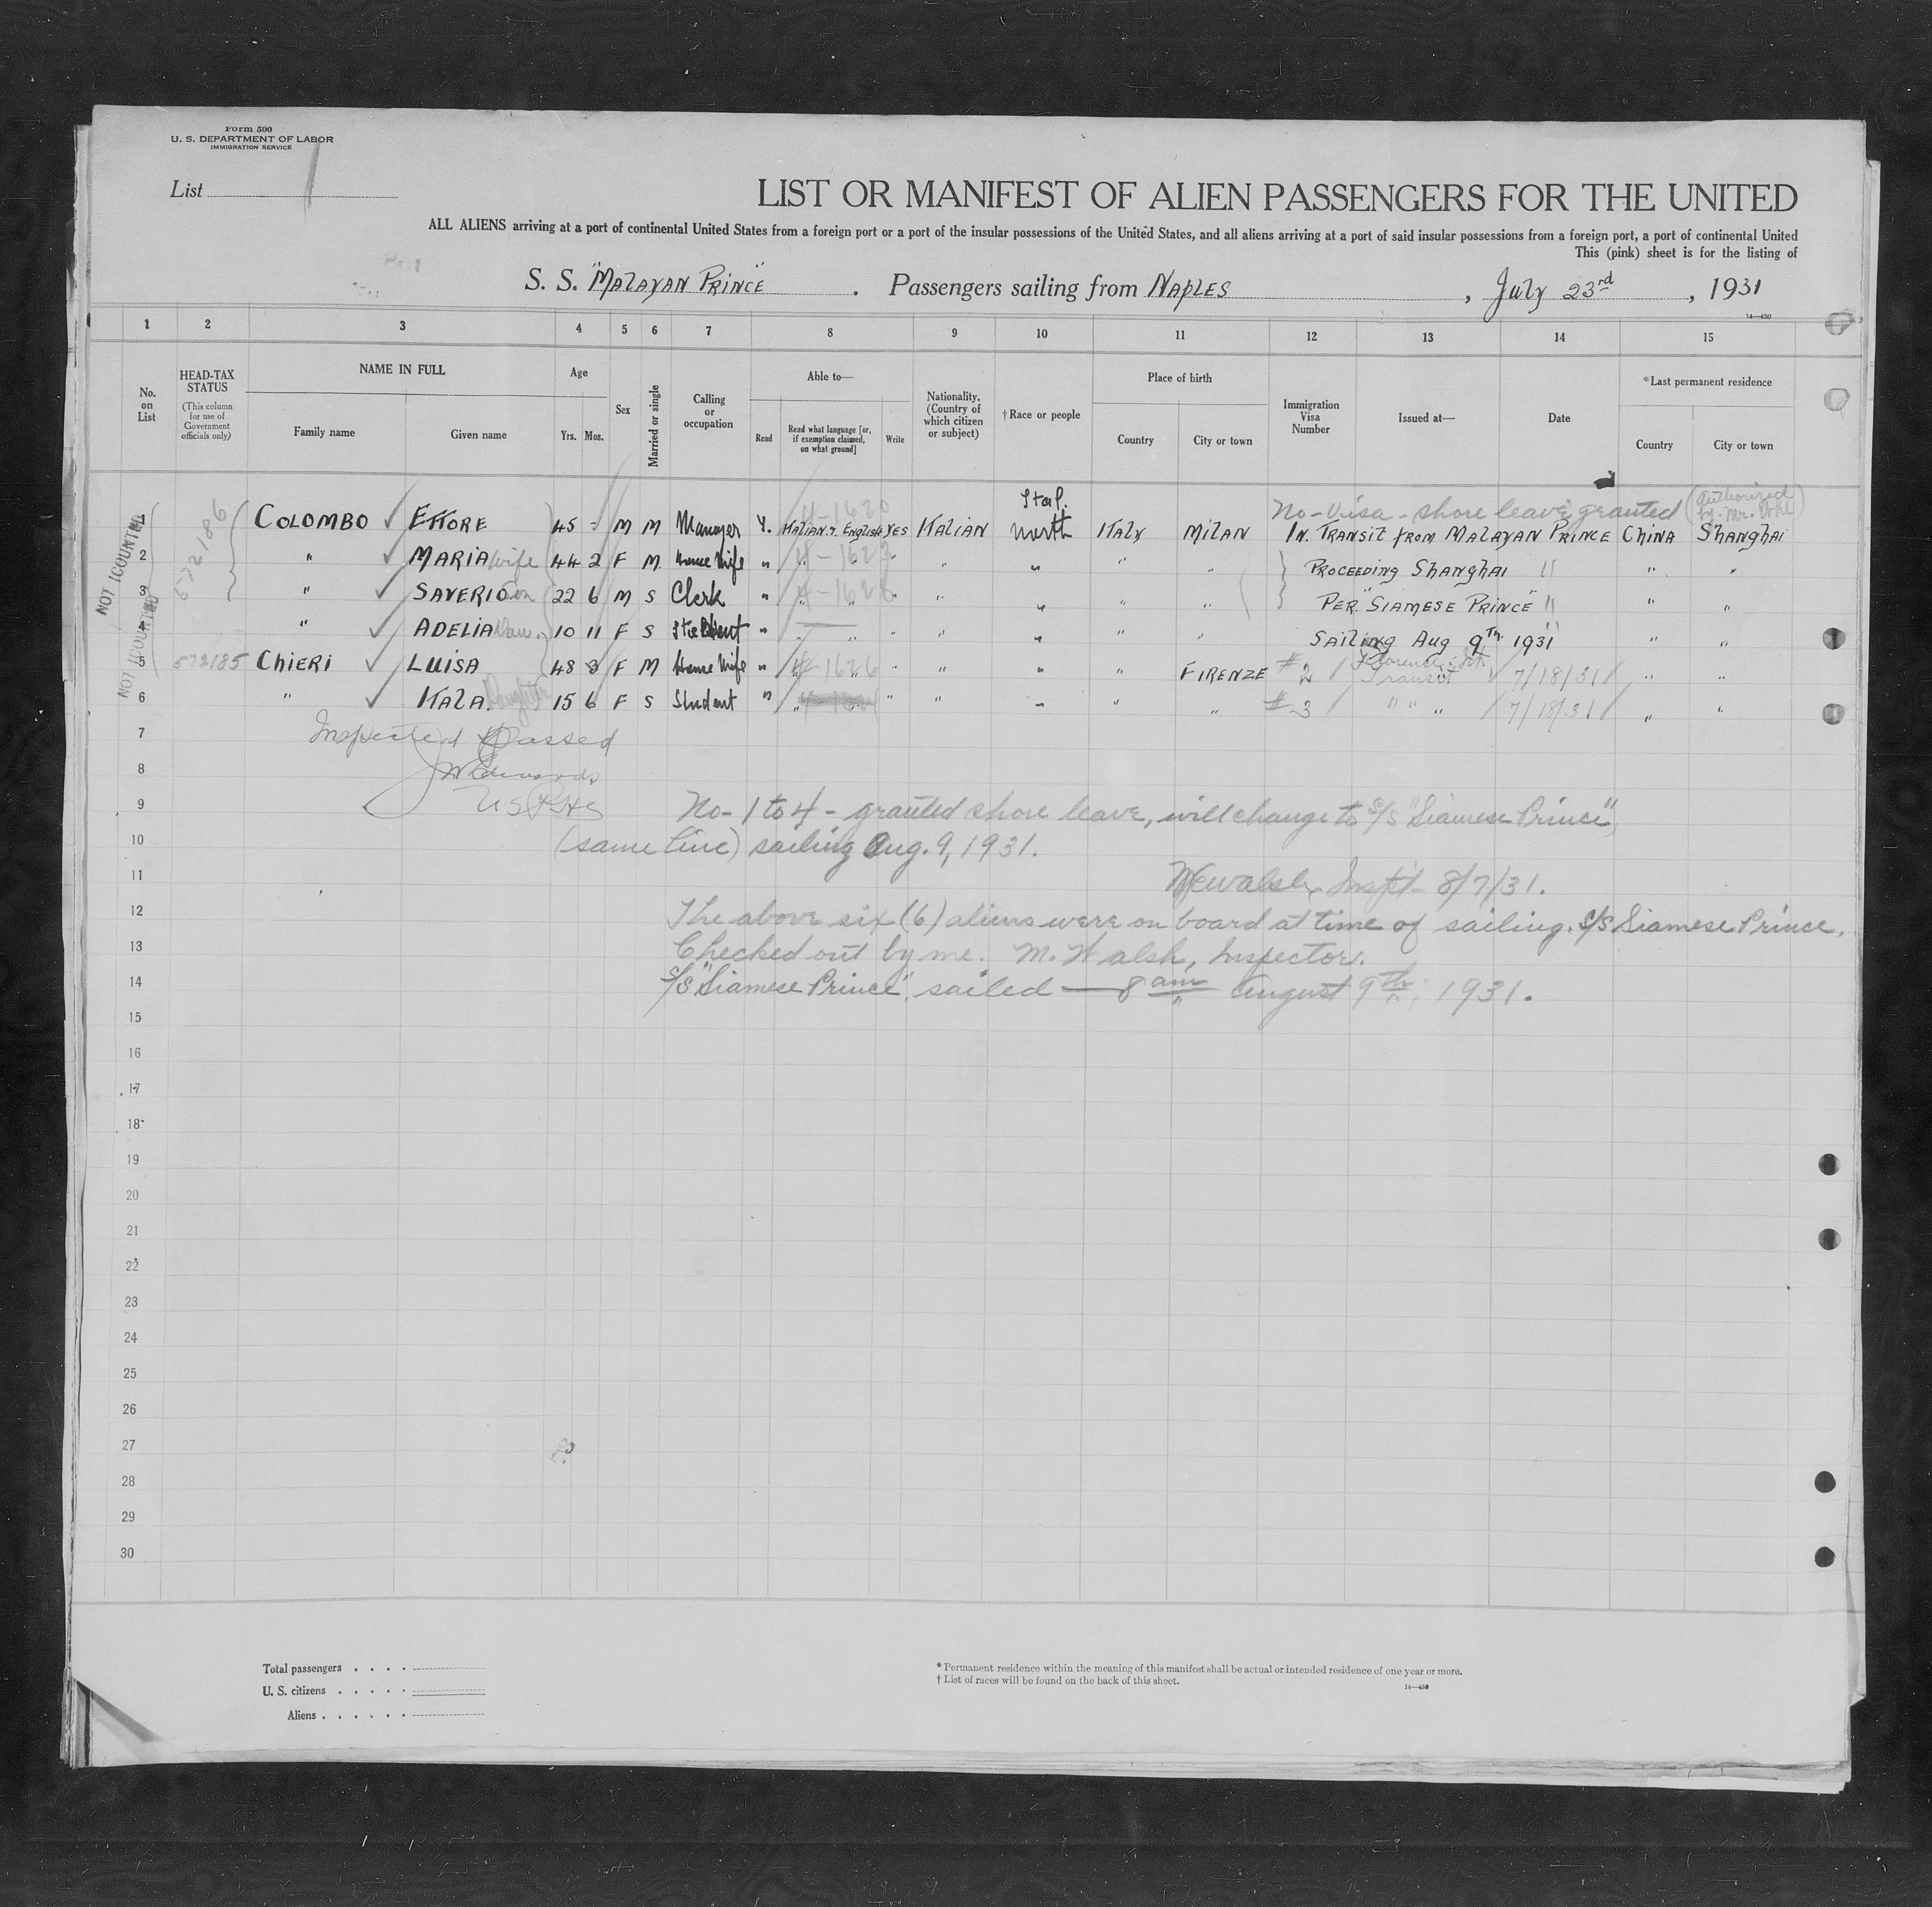 Form 500
U. S. DEPARTMENT OF LABOR
IMMIGRATION SERVICE
List 1
LIST OR MANIFEST OF ALIEN PASSENGERS FOR THE UNITED
ALL ALIENS arriving at a port of continental United States from a foreign port or a port of the insular possessions of the United States, and all aliens arriving at a port of said insular possessions from a foreign port, a port of continental United
This (pink) sheet is for the listing of
S. S. "MALAYAN PRINCE". Passengers sailing from NAPLES, July 23rd, 1931
14—430
1 2 3 4 5 6 7 8 9 10 11 12 13 14 15
No. on List
HEAD-TAX STATUS
(This column for use of Government officials only)
NAME IN FULL
Family name
Given name
Age
Yrs. Mos.
Sex
Married or single
Calling or occupation
Able to—
Read
Read what language [or, if exemption claimed, on what ground]
Write
Nationality. (Country of which citizen or subject)
† Race or people
Place of birth
Country
City or town
Immigration Visa Number
Issued at—
Date
*Last permanent residence
Country
City or town
NOT COUNTED
NOT COUNTED
572186
Ital.
No-Visa - shore leave granted (authorized by Mr.
1 COLOMBO ETTORE 45 - M M Manager Y. ITALIAN & ENGLISH YES ITALIAN north ITALY MILAN IN TRANSIT FROM MALAYAN PRINCE CHINA SHANGHAI
2 " MARIA wife 44 2 F M House Wife " " " " " " " PROCEEDING SHANGHAI " " "
3 " SAVERIO Son 22 6 M S Clerk " " " " " " " " PER "SIAMESE PRINCE" " " "
4 " ADELIA Dau. 10 11 F S Student " " " " " " " " SAILING AUG 9TH 1931 " "
5 572185 CHIERI LUISA 48 8 F M House Wife " 4-1626 " " " " FIRENZE #2 Florence, It. Transit 7/18/31 " "
6 " ITALA. Daughter 15 6 F S Student " " " " " " " " #3 " " " 7/18/31 " "
7 Inspected & Passed
8
USPHS
9 No- 1 to 4 - granted shore leave, will change to S/S "Siamese Prince"
10 (same line) sailing Aug. 9, 1931.
11 Walsh, Inspt 8/7/31.
12 The above six (6) aliens were on board at time of sailing. S/S Siamese Prince.
13 Checked out by me. M. Walsh, Inspector.
14 S/S "Siamese Prince" sailed — 8 am August 9th, 1931.
15
16
17
18
19
20
21
22
23
24
25
26
27
28
29
30
Total passengers . . . .
U. S. citizens . . . . .
Aliens . . . . . .
* Permanent residence within the meaning of this manifest shall be actual or intended residence of one year or more.
† List of races will be found on the back of this sheet.
14—430